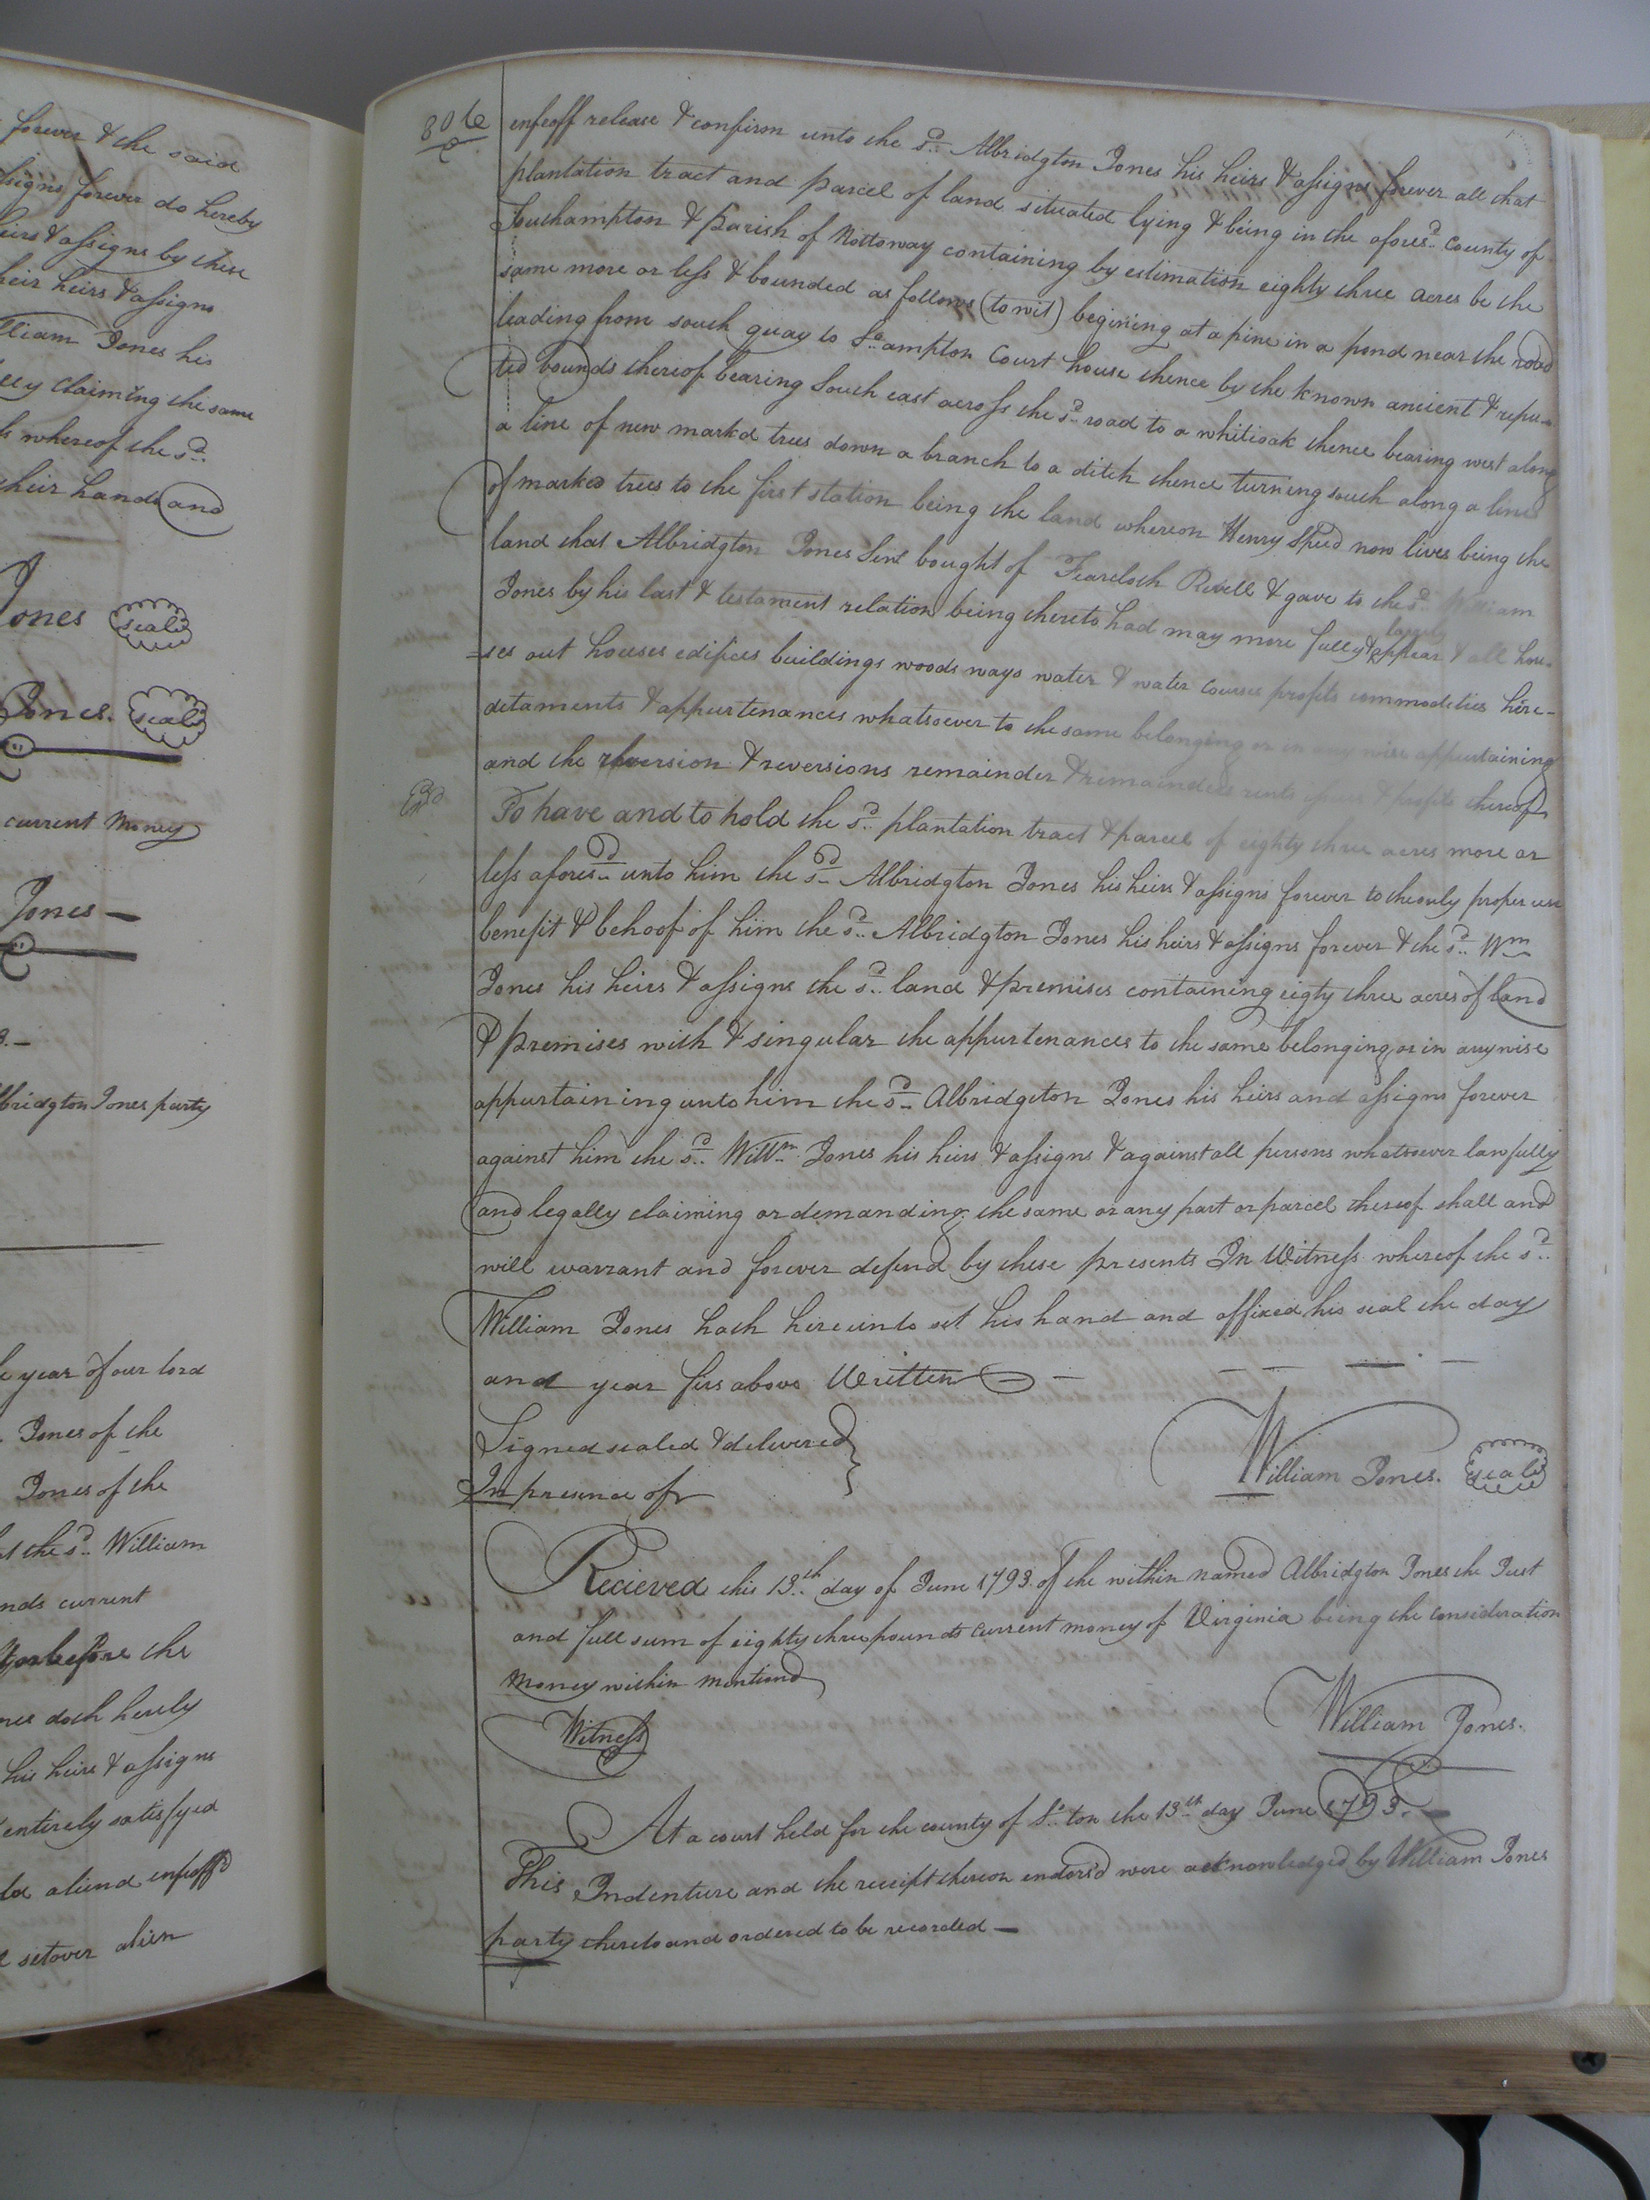 forever & the said
assigns forever do hereby
heirs & assigns by these
their heirs & assigns
William Jones his
claiming the same
whereof the sd.
their hands and
Jones seal
Jones. seal
current money
Jones
Albridgton Jones party
year of our lord
Jones of the
Jones of the
the sd. William
current
before the
doth hereby
his heirs & assigns
entirely satisfyed
aliend enfeoff'd
setover alien
306
enfeoff release & confirm unto the sd. Albridgton Jones his heirs & assigns forever all that
plantation tract and parcel of land situated lying & being in the aforesd. County of
Southampton & Parish of Nottoway containing by estimation eighty three acres be the
same more or less & bounded as follows (to wit) begining at a pine in a pond near the road
leading from south quay to So.ampton Court house thence by the known ancient & repu-
ted bounds thereof bearing South east across the sd. road to a whiteoak thence bearing west along
a line of new markd trees down a branch to a ditch thence turning south along a line
of marked trees to the first station being the land whereon Henry Speed now lives being the
land that Albridgton Jones Senr bought of Revell & gave to the sd. William
Jones by his last & testament relation being thereto had may more fully & appear & all hou-
=ses out houses edifices buildings woods ways water & water courses profits commodities here-
ditaments & appurtenances whatsoever to the same belonging or in any wise appurtaining
and the reversion & reversions remainder & remainders rents & profits thereof
To have and to hold the sd. plantation tract & parcel of eighty three acres more or
less aforesd. unto him the sd. Albridgton Jones his heirs & assigns forever to the only proper use
benefit & behoof of him the sd. Albridgton Jones his heirs & assigns forever & the sd. Wm
Jones his heirs & assigns the sd. land & premises containing eigty three acres of land
& premises with & singular the appurtenances to the same belonging or in anywise
appurtaining unto him the sd. Albridgeton Jones his heirs and assigns forever
against him the sd. Willm. Jones his heirs & assigns & against all persons whatsoever lawfully
and legally claiming or demanding the same or any part or parcel thereof shall and
will warrant and forever defend by these presents In Witness whereof the sd.
William Jones hath hereunto set his hand and affixed his seal the day
and year firs above Written
Signed sealed & delivered
In presence of
William Jones. seal
Recieved this 13th. day of June 1793 of the within named Albridgton Jones the Just
and full sum of eighty three pounds current money of Virginia being the consideration
Money within mentiond
Witness
William Jones.
At a court held for the county of So.ton the 13th day June 1793.
This Indenture and the receipt thereon endors'd were acknowledged by William Jones
party thereto and ordered to be recorded